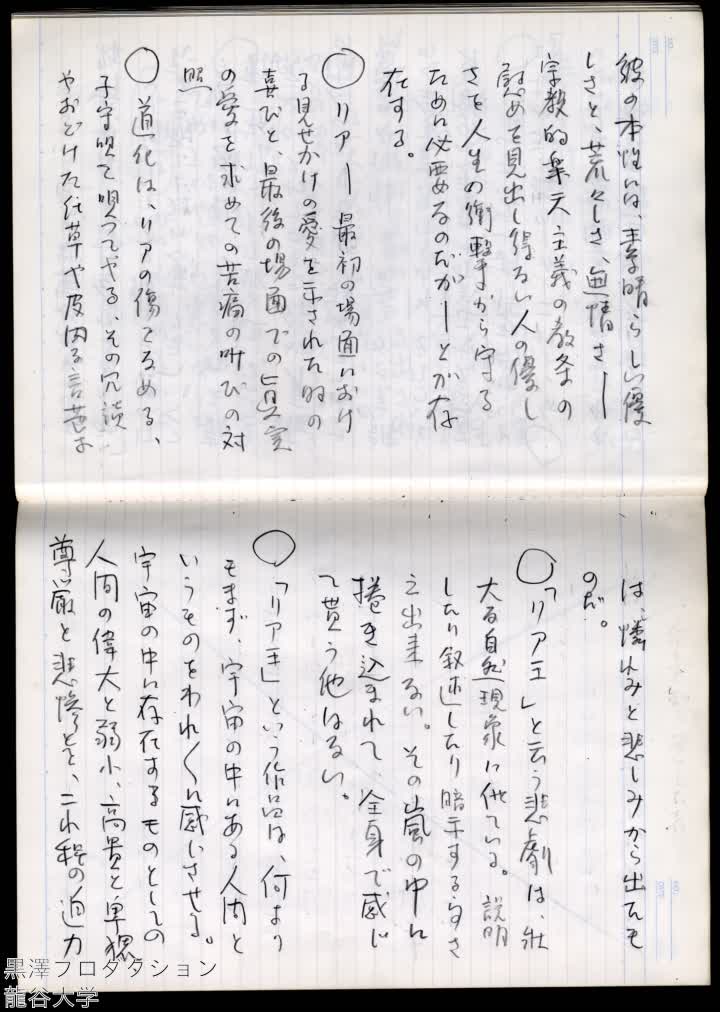 彼の本性には、素晴らしい優
しさと、荒々しさ、無情さ―
宗教的楽天主義の教条の
慰めを見出し得ない人の優し
さを人生の衝撃から守る
ために必要なのだが―とが存
在する。
○ リアー 最初の場面におけ
る見せかけの愛を示された時の
喜びと、最後の場面での真実
の愛を求めての苦痛の叫びの対
照
○ 道化は、リアの傷をなめる、
子守唄を唄ってやる、その冗談
やおどけた仕草や皮肉な言葉は
は、憐れみと悲しみから出たも
のだ。
○「リア王」と云う悲劇は、壮
大な自然現象に似ている。説明
したり叙述したり暗示する事さ
え出来ない。その嵐の中に
捲き込まれて、全身で感じ
て貰う他はない。
○「リア王」という作品は、何より
もまず、宇宙の中にある人間と
いうものをわれ〱に感じさせる。
宇宙の中に存在するものとしての
人間の偉大と弱小、高貴と卑猥
尊厳と悲惨とを、これ程の迫力
黒澤プロダクション
龍谷大学